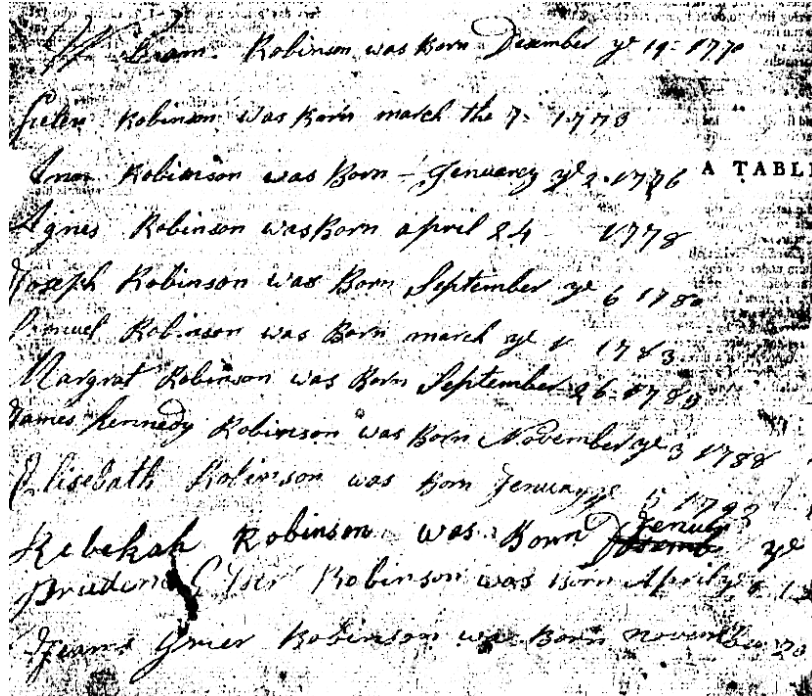 Robinson was Born Desember ye 19 - 1770
Robinson was Born march the 7 - 1773
Robinson was Born - Jenuarey ye 2 - 1776
A TABL
Agnes Robinson was Born april 24 1778
Joseph Robinson was Born September ye 6 1780
Robinson was Born march ye 1783
Margrat Robinson was Born September 26 - 178
James Kennedy Robinson was Born November ye 3 1788
Elisebath Robinson was Born Jenuary ye 5 179
Rebekah Robinson was Born Jenuary ye
Robinson was Born April ye 6
Grier Robinson was Born november 20